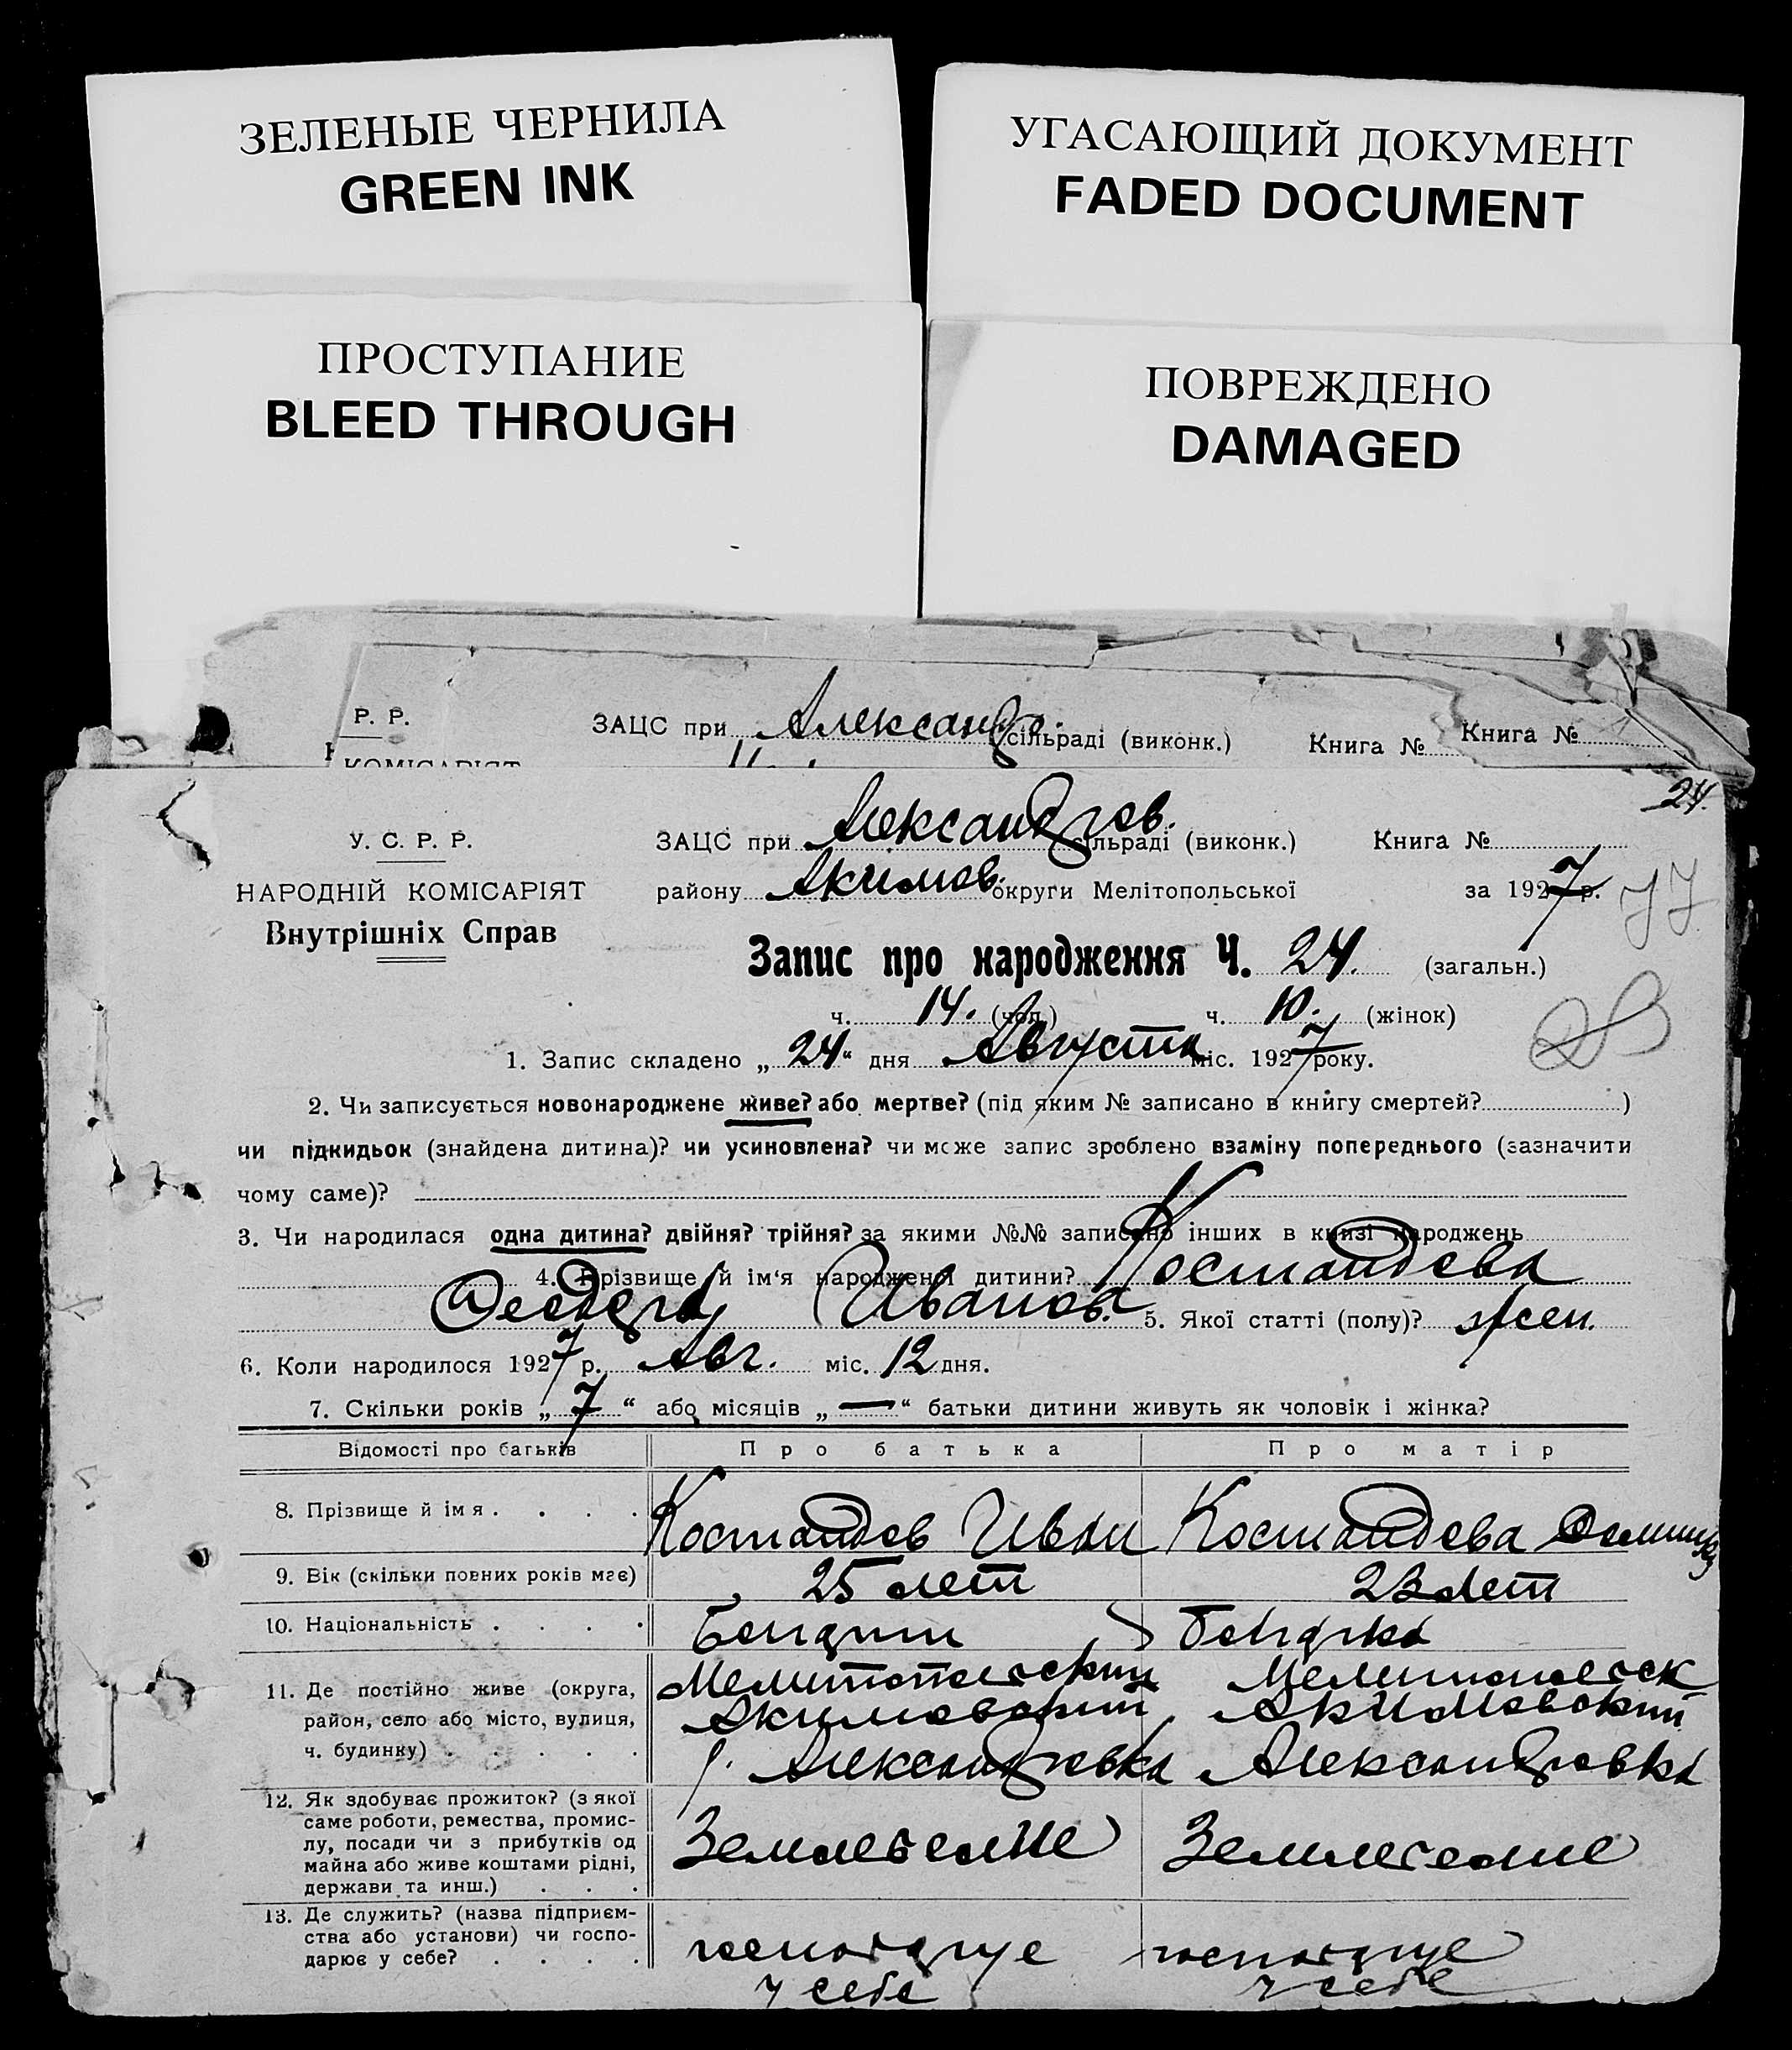 ЗЕЛЕНЫЕ ЧЕРНИЛА
GREEN INK
УГАСАЮЩИЙ ДОКУМЕНТ
FADED DOCUMENT
ПРОСТУПАНИЕ
BLEED THROUGH
ПОВРЕЖДЕНО
DAMAGED
Р. Р. ЗАЦС при Александр. сільраді (виконк.) Книга № Книга №
КОМІСАРІЯТ
24.
У. С. Р. Р. ЗАЦС при Александров. сільраді (виконк.) Книга №
НАРОДНІЙ КОМІСАРІЯТ району Акимов. округи Мелітопольської за 1927 р. 77
Внутрішніх Справ
Запис про народження Ч. 24. (загальн.)
ч. 14. (чол.) ч. 10. (жінок)
1. Запис складено „ 24 “ дня Августа міс. 1927 року.
2. Чи записується новонароджене живе? або мертве? (під яким № записано в книгу смертей? )
чи підкидьок (знайдена дитина)? чи усиновлена? чи може запис зроблено взаміну попереднього (зазначити
чому саме)?
3. Чи народилася одна дитина? двійня? трійня? за якими №№ записано інших в книзі народжень
4. Прізвище й ім‘я народженої дитини? Костандева
Иванов. 5. Якої статті (полу)? жен.
6. Коли народилося 1927 р. Авг. міс. 12 дня.
7. Скільки років „ 7 “ або місяців „ — “ батьки дитини живуть як чоловік і жінка?
Відомості про батьків Про батька Про матір
8. Прізвище й ім я . . . . Костандов Иван Костандова
9. Вік (скільки повних років має) 25 лет 23 лет
10. Національність . . . .
11. Де постійно живе (округа, Мелитопольский Мелитопольск
район, село або місто, вулиця, Акимовский Акимовский
ч. будинку) . . . . . Александровка Александровка
12. Як здобуває прожиток? (з якої
саме роботи, ремества, промис-
лу, посади чи з прибутків од Земледелие Земледелие
майна або живе коштами рідні,
держави та инш.) . . .
13. Де служить? (назва підприєм-
ства або установи) чи госпо- господарує господарує
дарює у себе? . . . . у себе у себе